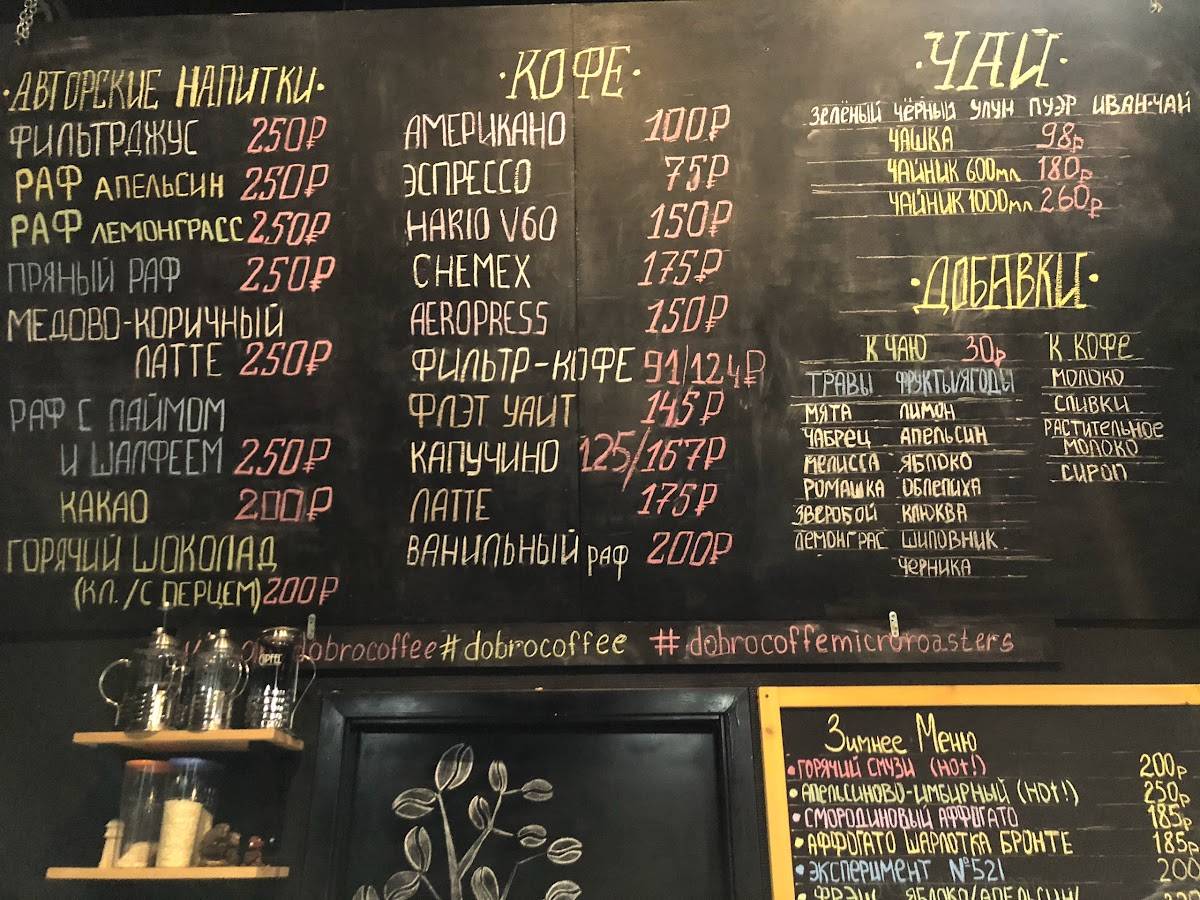 ·АВТОРСКИЕ НАПИТКИ·
ФИЛЬТРДЖУС 250₽
РАФ АПЕЛЬСИН 250₽
РАФ ЛЕМОНГРАСС 250₽
ПРЯНЫЙ РАФ 250₽
МЕДОВО-КОРИЧНЫЙ
ЛАТТЕ 250₽
РАФ С ЛАЙМОМ
И ШАЛФЕЕМ 250₽
КАКАО 200₽
ГОРЯЧИЙ ШОКОЛАД
(КЛ./С ПЕРЦЕМ) 200₽
·КОФЕ·
АМЕРИКАНО 100₽
ЭСПРЕССО 75₽
HARIO V60 150₽
CHEMEX 175₽
AEROPRESS 150₽
ФИЛЬТР-КОФЕ 91/124₽
ФЛЭТ УАЙТ 145₽
КАПУЧИНО 125/167₽
ЛАТТЕ 175₽
ВАНИЛЬНЫЙ РАФ 200₽
·ЧАЙ·
ЗЕЛЁНЫЙ ЧЁРНЫЙ УЛУН ПУЭР ИВАН-ЧАЙ
ЧАШКА 98р
ЧАЙНИК 600мл 180р
ЧАЙНИК 1000мл 260р
·ДОБАВКИ·
К ЧАЮ 30р К КОФЕ
ТРАВЫ ФРУКТЫ/ЯГОДЫ МОЛОКО
МЯТА ЛИМОН СЛИВКИ
ЧАБРЕЦ АПЕЛЬСИН РАСТИТЕЛЬНОЕ
МЕЛИССА ЯБЛОКО МОЛОКО
РОМАШКА ОБЛЕПИХА СИРОП
ЗВЕРОБОЙ КЛЮКВА
ЛЕМОНГРАС ШИПОВНИК
ЧЕРНИКА
dobrocoffee #dobrocoffee #dobrocoffemicroroasters
Зимнее Меню
•ГОРЯЧИЙ СМУЗИ (HOt!) 200р
•АПЕЛЬСИНОВО-ИМБИРНЫЙ (HOt!) 250р
•СМОРОДИНОВЫЙ АФФОГАТО 185р
•АФФОГАТО ШАРЛОТКА БРОНТЕ 185р
•ЭКСПЕРИМЕНТ №521 200
ЯБЛОКО/АПЕЛЬСИН/